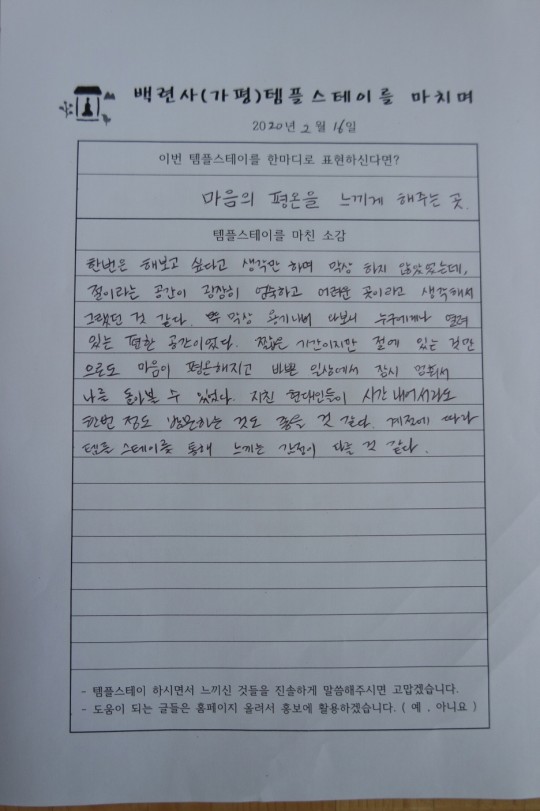 백련사(가평)템플스테이를 마치며
2020년 2월 16일
이번 템플스테이를 한마디로 표현하신다면?
마음의 평온을 느끼게 해주는 곳.
템플스테이를 마친 소감
한번은 해보고 싶다고 생각만 하며 막상 하지 않았었는데,
절이라는 공간이 굉장히 엄숙하고 어려운 곳이라고 생각해서
그랬던 것 같다. 막상 용기내어 와보니 누구에게나 열려
있는 편한 공간이었다. 짧은 기간이지만 절에 있는 것만
으로도 마음이 평온해지고 바쁜 일상에서 잠시 멈춰서
나를 돌아볼 수 있었다. 지친 현대인들이 시간 내어서라도
한번 정도 방문하는 것도 좋을 것 같다. 계절에 따라
템플스테이를 통해 느끼는 감정이 다를 것 같다.
- 템플스테이 하시면서 느끼신 것들을 진솔하게 말씀해주시면 고맙겠습니다.
- 도움이 되는 글들은 홈페이지 올려서 홍보에 활용하겠습니다. ( 예 , 아니요 )